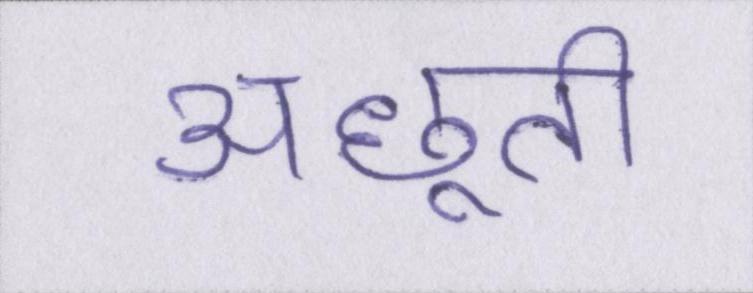 अछूती